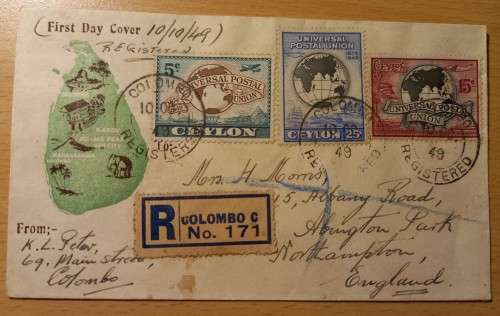 (First Day Cover 10/10/49)
REgistered
KANDY
MAHIYANGANA
5c
UNIVERSAL POSTAL
UNION
CEYLON
UNIVERSAL
POSTAL UNION
1874
1949
CEYLON 25c
15c
UNIVERSAL POSTAL
UNION
COLOMBO
REGISTERED
COLOMBO
49
REGISTERED
49
REGISTERED
R COLOMBO C
No. 171
Mrs. H. Morris
15, Albany Road,
Abington Park
Northampton,
England.
From;-
K. L. Peter,
69, Main Street,
Colombo